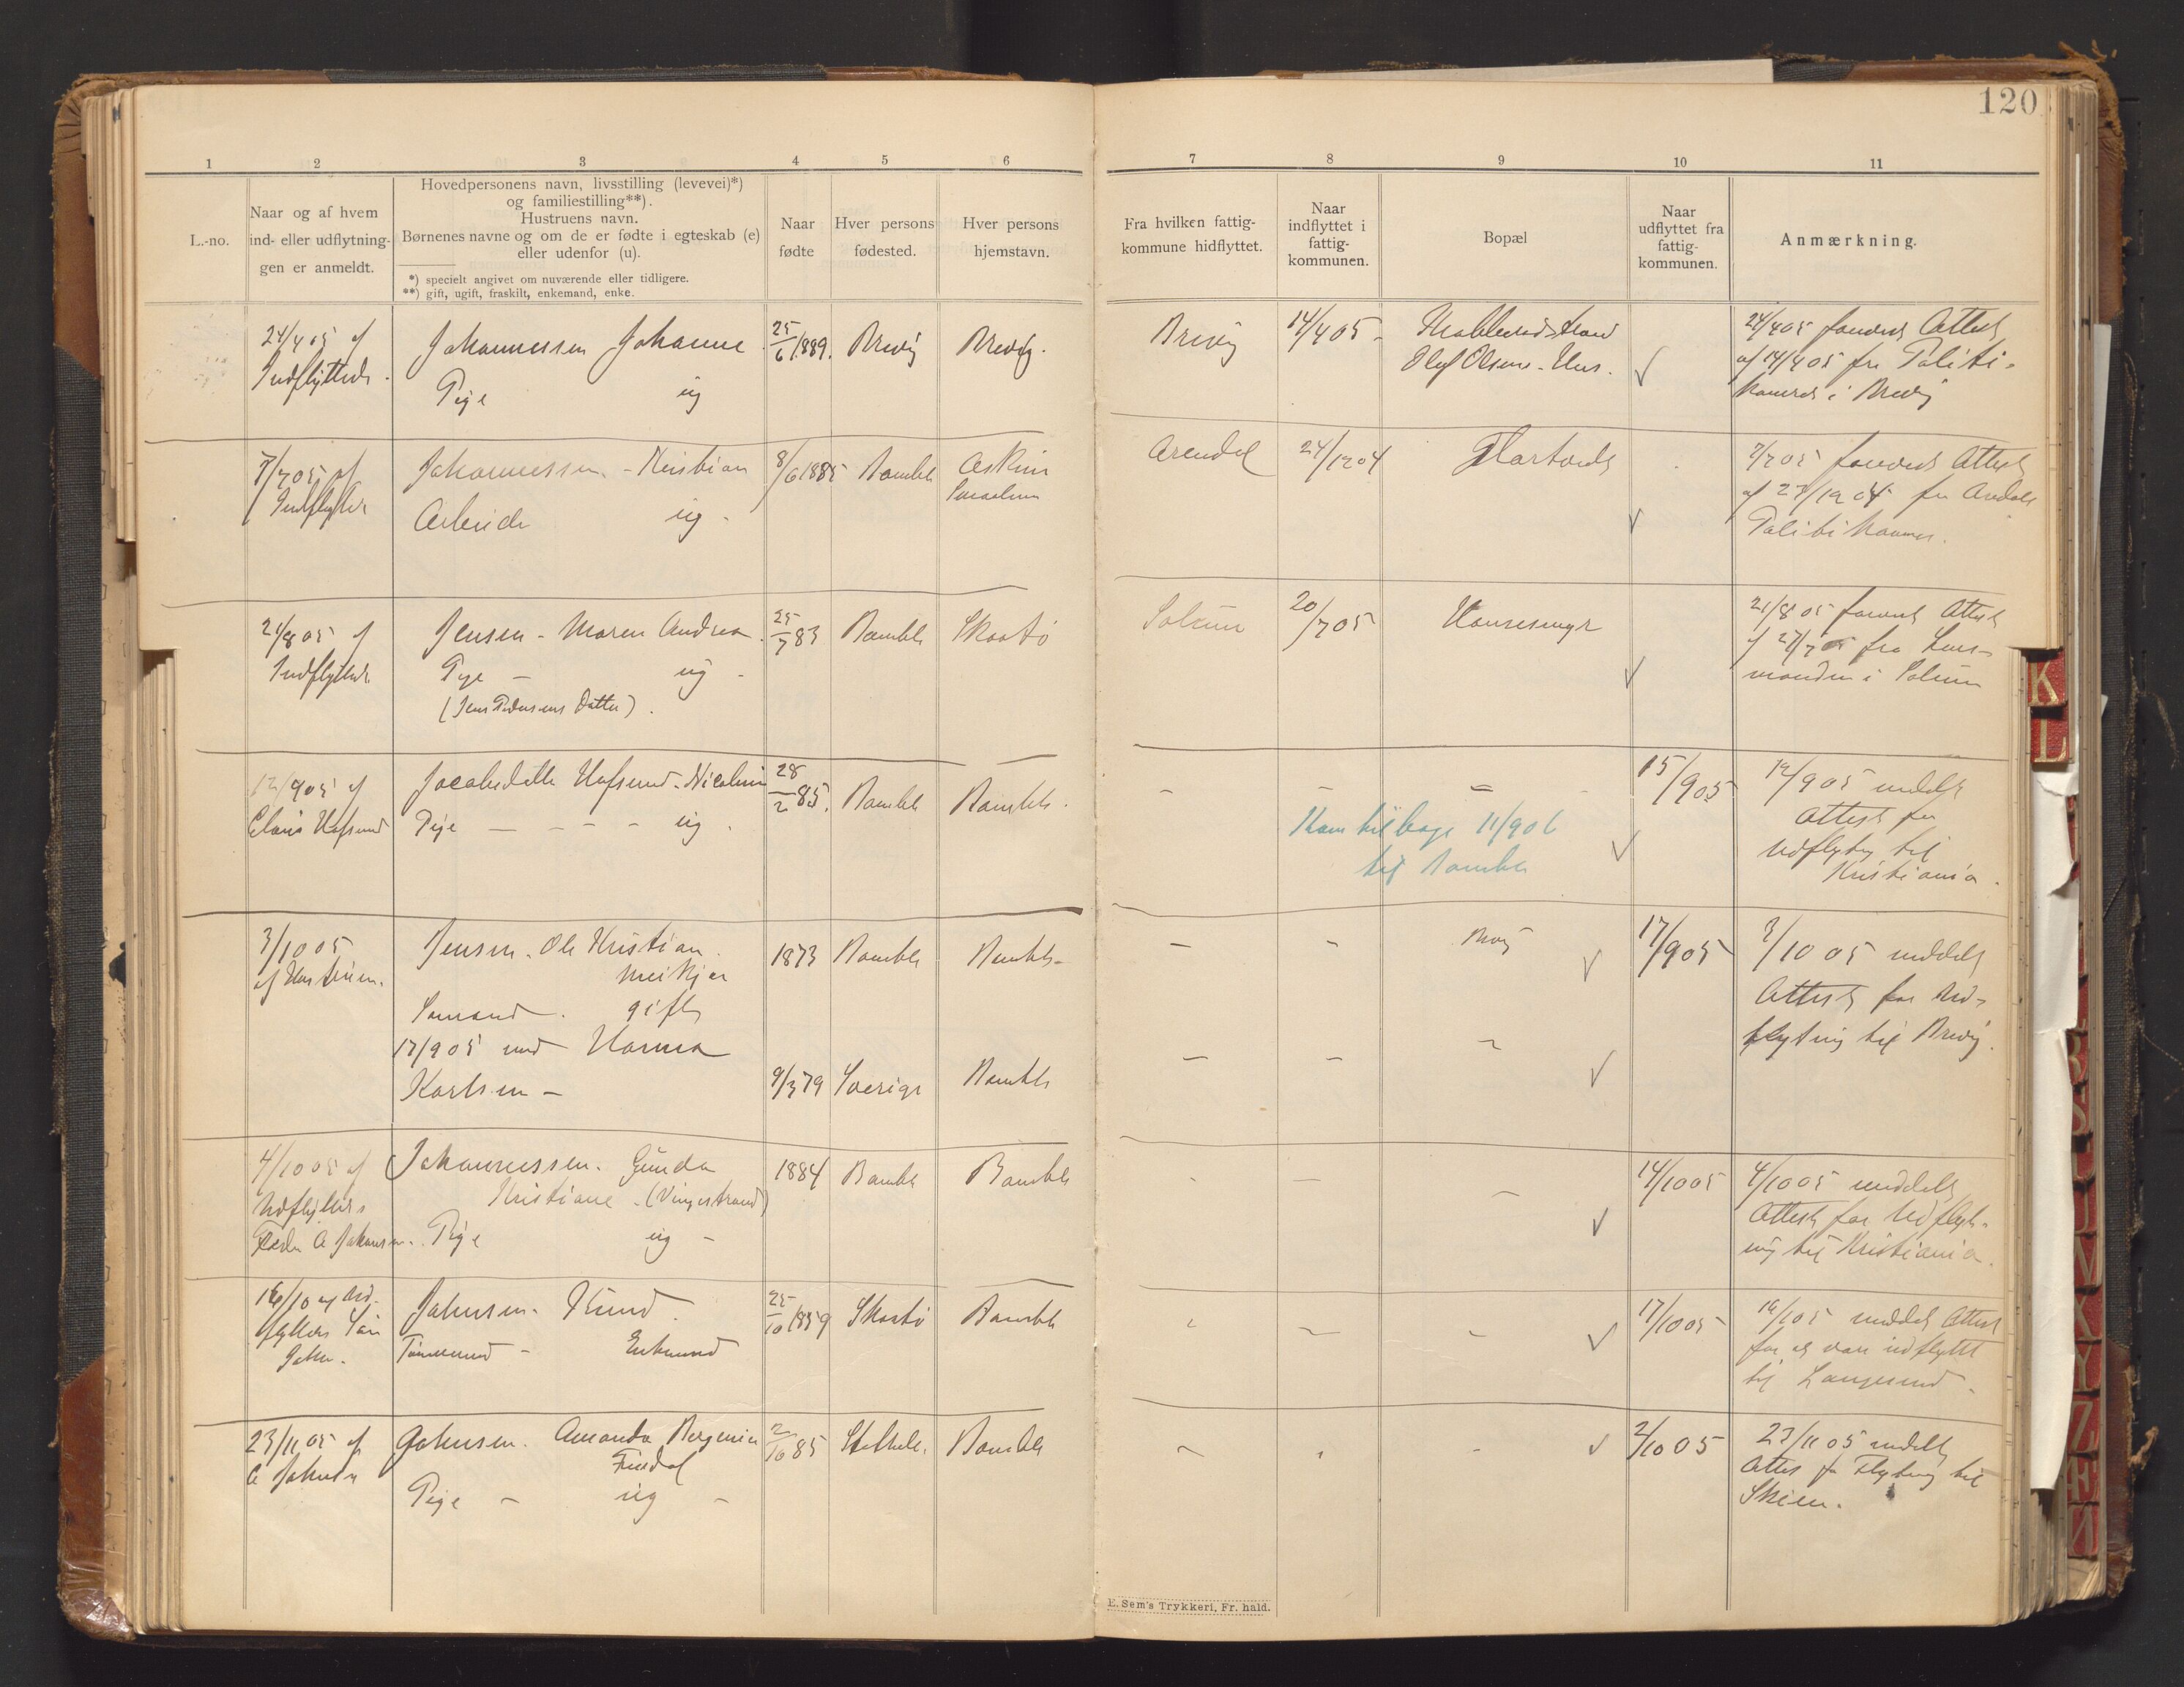 120
1 2 3 4 5 6 7 8 9 10 11
L.-no.
Naar og af hvem
ind- eller udflytning-
gen er anmeldt.
Hovedpersonens navn, livsstilling (levevei)*)
og familiestilling**).
Hustruens navn.
Børnenes navne og om de er fødte i egteskab (e)
eller udenfor (u).
*) specielt angivet om nuværende eller tidligere.
**) gift, ugift, fraskilt, enkemand, enke.
Naar
fødte
Hver persons
fødested.
Hver persons
hjemstavn.
Fra hvilken fattig-
kommune hidflyttet.
Naar
indflyttet i
fattig-
kommunen.
Bopæl
Naar
udflyttet fra
fattig-
kommunen.
Anmærkning.
24/4 05 af
Indflyttede.
Johannessen Johanne
Pige ug
25/6 1889.
Brevig
Brevig.
Brevig
14/4 05
Olaf Olsens Hus.
24/4 05 forevist Attest
af 14/4 05 fra Politi-
kamret i Brevig
7/7 05 af
Johannessen - Kristian
Arbeider ug -
8/6 1885
Bamble
Askim
Arendal
24/12 04
7/7 05 forevist Attest
Politikammer.
21/8 05 af
Indflyttede
Jensen - Maren Andrea
Pige - ug -
(Jens Pedersens Datter).
25/7 83
Bamble
Skaatø
Solum
20/7 05
21/8 05 forevist Attest
af 27/7 05 fra Lens-
manden i Solum
12/9 05 af
Jacobsdatter Hafsund - Nicoline
Pige - - - - ug.
28/2 85.
Bamble
Bamble.
Kom tilbage 11/9 06
til Bamble
15/9 05
12/9 05 meddelt
Attest for
Udflytning til
Kristiania.
3/10 05
af Hustruen.
Jensen - Ole Kristian.
Sømand. gift
17/9 05 med Hanna
Karlsen -
1873
Bamble
Bamble -
17/9 05
3/10 05 meddelt
Attest for Ud-
flytning til Brevig.
9/3 79
Sverige
Bamble
4/10 05 af
Udflytters
Johannessen. Gunda
Kristiane - (Vingestrand)
Pige ug -
1884
Bamble
Bamble
14/10 05
4/10 05 meddelt
Attest for Udflyt-
ning til Kristiania.
16/10 af Ud-
flytters Søn
John.
Johnsen - Knud.
Tømmermand - Enkemand
25/10 1859
Skaatø
Bamble
17/10 05
16/10 5 meddelt Attest
for at være udflyttet
til Langesund -
23/11 05 af
Johnsen. Amanda Bergenie
Findal
Pige - ug -
2/10 85
Stathelle
Bamble
2/10 05
23/11 05 meddelt
Attest for Flytning til
Skien.
E. Sem's Trykkeri, Fr. hald.
K
L